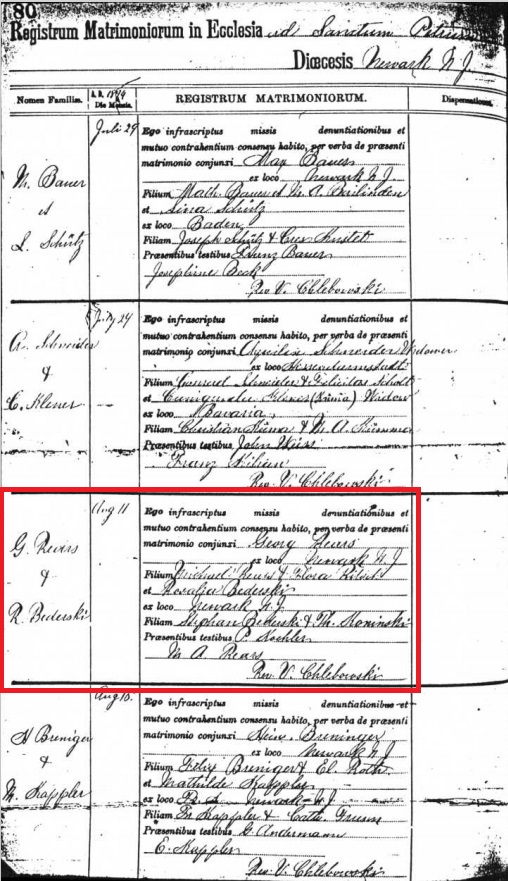 80
Registrum Matrimoniorum in Ecclesia ad Sanctum Petrum
Diœcesis Newark N J
Nomen Familiæ. A. D. 1879 Die Mensis. REGISTRUM MATRIMONIORUM. Dispensationes.
M. Bauer
et
L. Schütz
Juli 29
Ego infrascriptus missis denuntiationibus et
mutuo contrahentium consensu habito, per verba de præsenti
matrimonio conjunxi Max Bauer
ex loco Newark N. J.
Filium Math. Bauer et M. A.
et Lina Schütz
ex loco Baden
Filiam Joseph Schütz &
Præsentibus testibus Franz Bauer
Josephine Beck
Rev V. Chlebowski
A. Schneider
&
C. Klener
July 24
Ego infrascriptus missis denuntiationibus et
mutuo contrahentium consensu habito, per verba de præsenti
matrimonio conjunxi Schneider Widower
ex loco
Filium Schneider & Felicitas
et Widow
ex loco Bavaria
Filiam Christian & M. A.
Præsentibus testibus John Weiss
Franz Kilian
Rev V. Chlebowski
G. Revirs
&
R. Bederski
Aug 11
Ego infrascriptus missis denuntiationibus et
mutuo contrahentium consensu habito, per verba de præsenti
matrimonio conjunxi Georg Rears
ex loco Newark N. J.
Filium Michael Rears & Flora
et Rosalia Bederski
ex loco Newark N. J.
Filiam Stephan Bederski & Th. Koninski
Præsentibus testibus P. Kochler
M A Rears
Rev V. Chlebowski
H Breniger
&
M. Kappler
Aug 18.
Ego infrascriptus missis denuntiationibus et
mutuo contrahentium consensu habito, per verba de præsenti
matrimonio conjunxi Hein. Breninger
ex loco Newark N J
Filium Breniger & El. Roth
et Mathilde Kappler
ex loco Newark N J
Filiam Fr Kappler & Cath.
Præsentibus testibus G. Andermann
E. Kappler
Rev V. Chlebowski